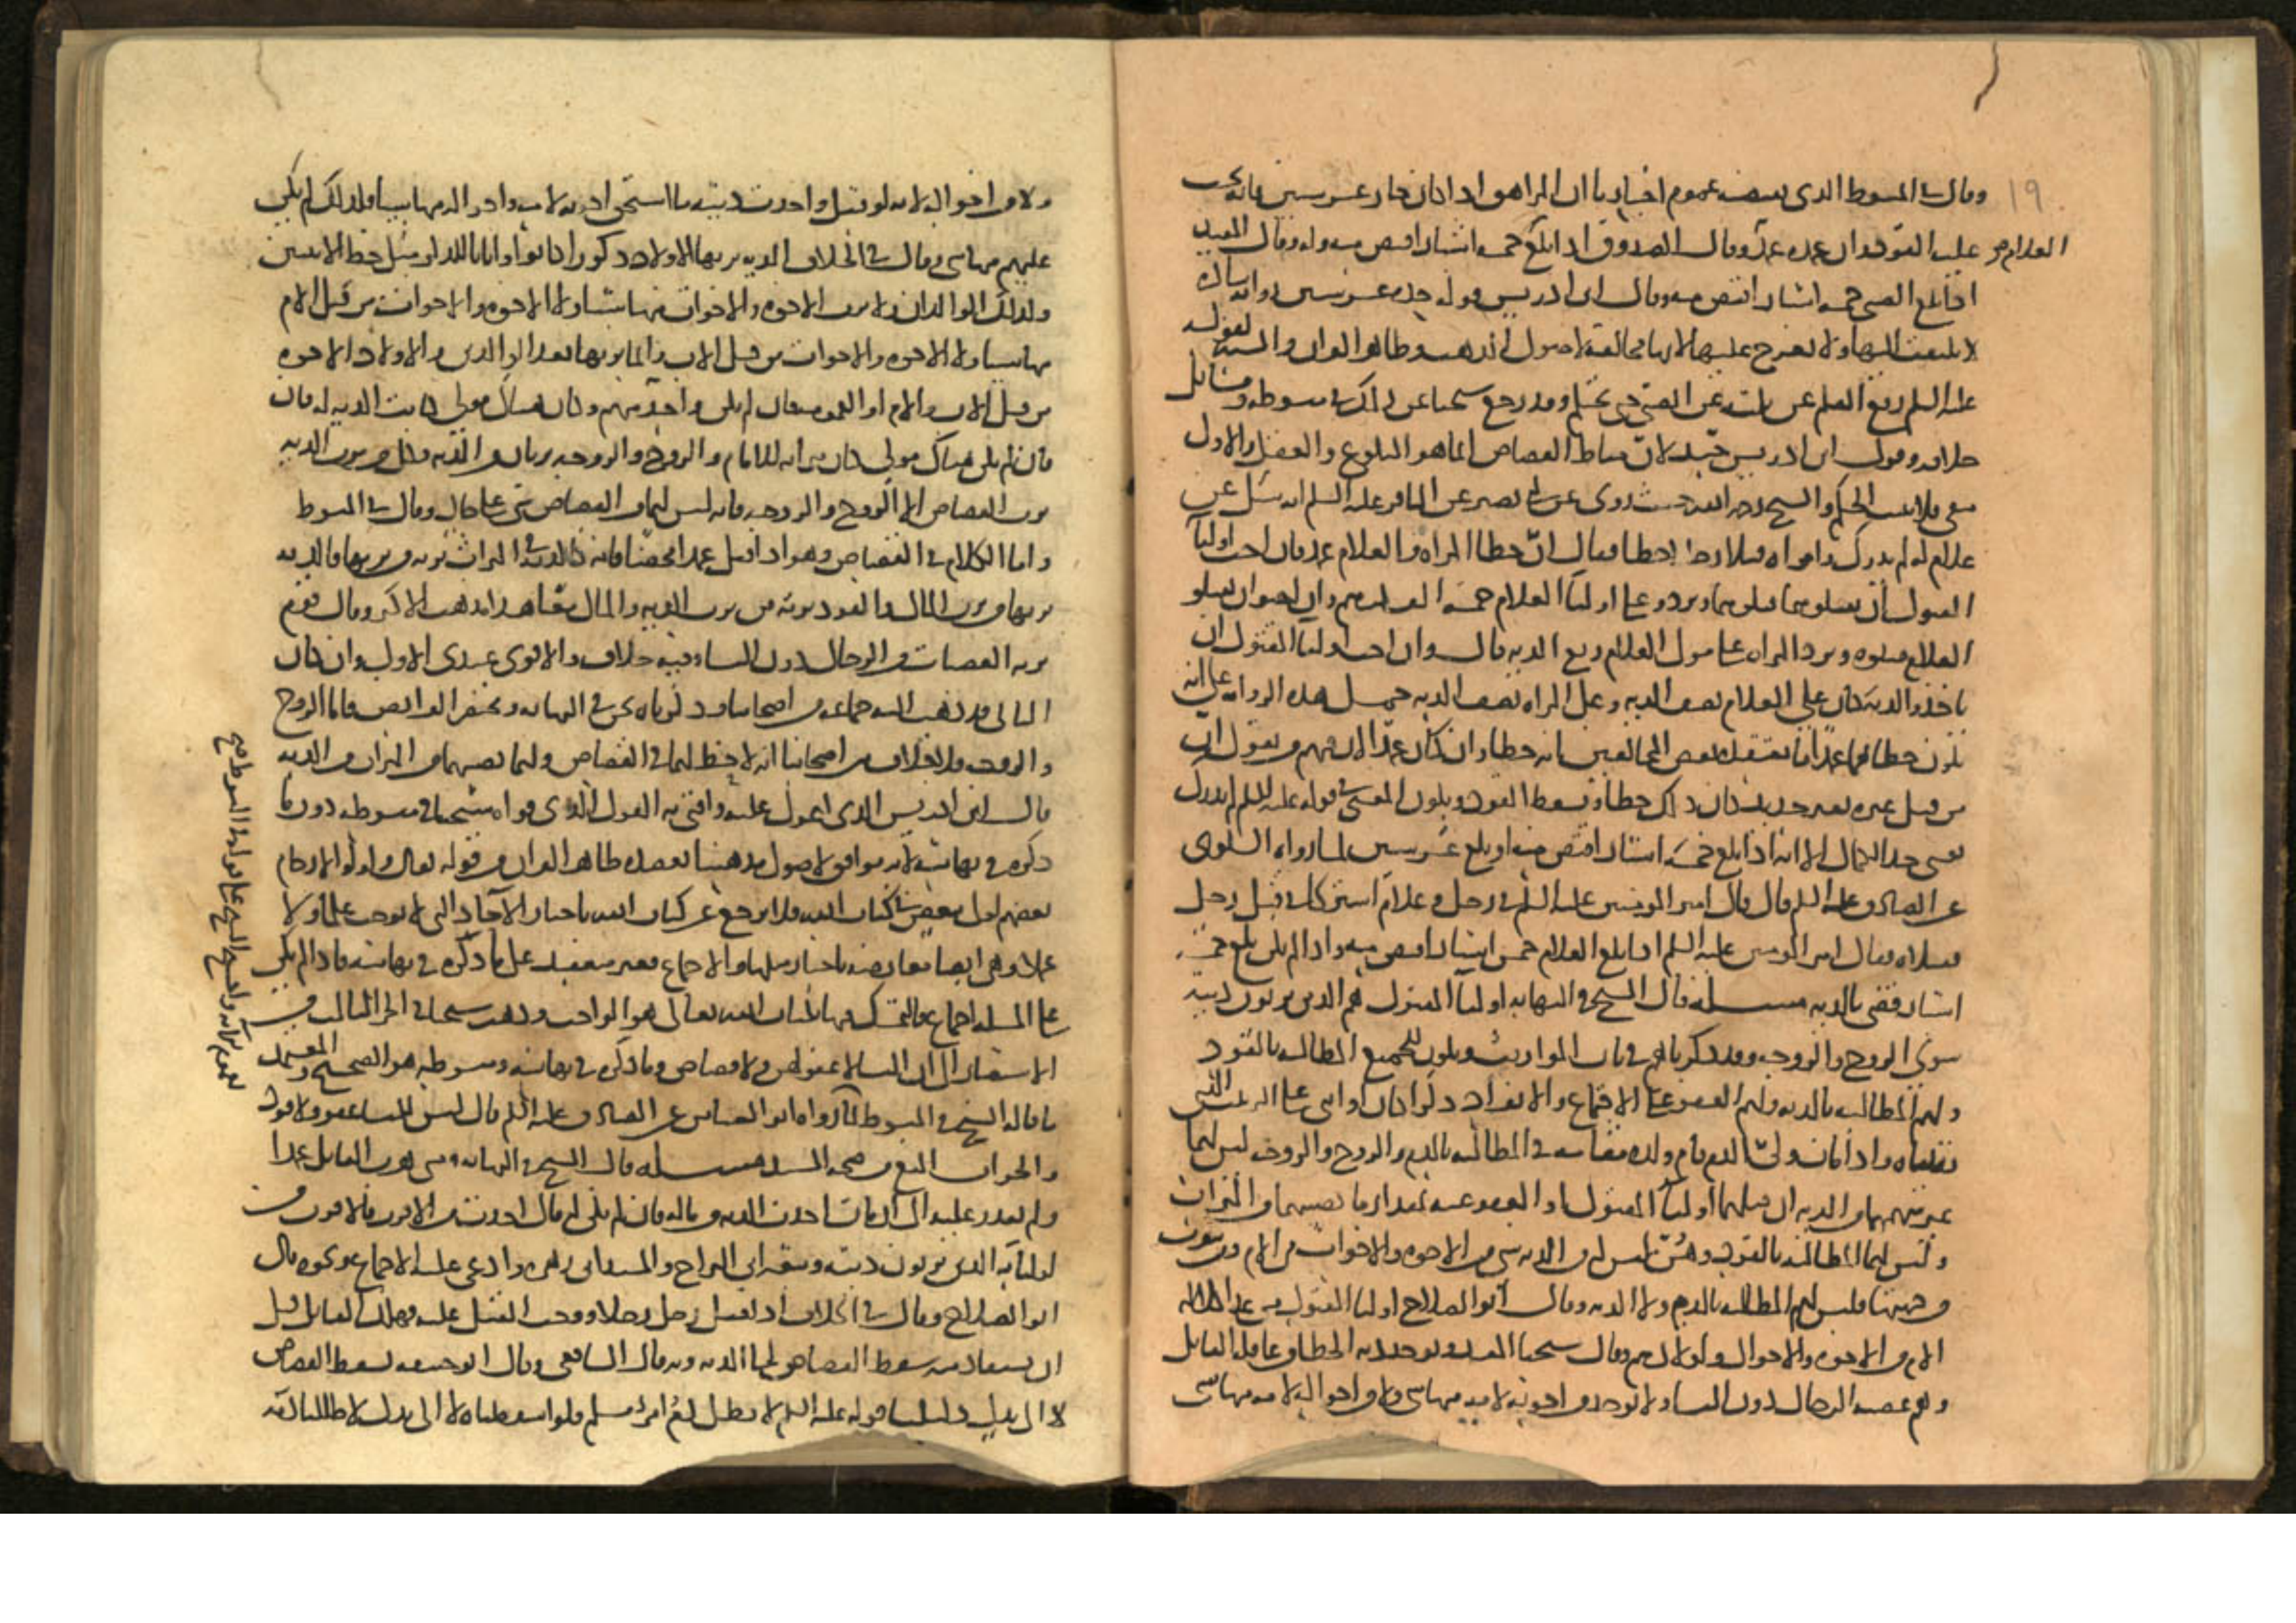 ١٩
وقال في المبسوط الذي يقتضيه عموم اخبارنا ان المراهق اذا كان جاز عشر سنين فانه يجب
عليه القود وان عمده عمد وقال الصدوق اذا بلغ خمسة اشبار اقتص منه وله وقال المفيد
اذا بلغ الصبي خمسة اشبار اقتص منه وقال ابن ادريس قوله بحده عشر سنين رواية شاذة
لا يلتفت اليها ولا يعرج عليها لانها مخالفة لاصول المذهب وظاهر القران والسنة لقوله
عليه السلم رفع القلم عن ثلثة عن الصبي حتى يحتلم وقد رجع شيخنا عن ذلك في مبسوطه ومسائل
خلافه وقول ابن ادريس جيد لان مناط القصاص انما هو البلوغ والعقل والاول
منفي فلا يثبت الحكم والشيخ رحمه الله حيث روى عن ابي بصير عن الباقر عليه السلم انه سئل عن
غلام لم يدرك وامراة قتلا رجلا خطا فقال ان خطا المراة والغلام عمد فان احب اوليا
المقتول ان يقتلوهما قتلوهما ويردوا على اوليا الغلام خمسة الف درهم وان احبوا ان يقتلوا
الغلام قتلوه وترد المراة على مولى الغلام ربع الدية قال وان احب اوليا المقتول ان
ياخذوا الدية كان على الغلام نصف الدية وعلى المراة نصف الدية حمل هذه الرواية على انه
يكون خطاهما عمدا ما يعتقده بعض المخالفين انه خطا وان كان عمدا لان منهم من يقول ان
من قتل غيره بغير حديد كان ذلك خطا ويسقط القود ويكون المعنى في قوله عليه السلم لم يدرك
يعني حد الكمال الا انه اذا بلغ خمسة اشبار اقتص منه او بلغ عشر سنين لما رواه السكوني
عن الصادق عليه السلم قال قال امير المومنين عليه السلم في رجل وغلام اشتركا في قتل رجل
فقتلاه فقال امير المومنين عليه السلم اذا بلغ الغلام خمسة اشبار اقتص منه واذا لم يكن بلغ خمسة
اشبار قضي بالدية مسئلة قال الشيخ في النهاية اوليا المقتول هم الذين يرثون ديته
سوى الزوج والزوجة وقد ذكرناهم في باب المواريث ويكون للجميع المطالبة بالقود
ولهم المطالبة بالدية ولهم العفو على الاجتماع والانفراد ذكرا كان او انثى على الترتيب الذي
رتبناه واذا مات ولي الدم قام ولده مقامه في المطالبة بالدم والزوج والزوجة ليس لهما
غير سهمهما من الدية ان قبلها اوليا المقتول او العفو عنه بمقدار ما نصيبهما من الميراث
وليس لهما المطالبة بالقود ومن ليس له من الدية شي من الاخوة والاخوات من الام ومن يتقرب
من جهتها فليس لهم المطالبة بالدم ولا الدية وقال ابو الصلاح اوليا المقتول
الام من الاخوة والاخوال واولادهم وقال شيخنا المفيد وتوخذ دية الخطا من عاقلة القاتل
وهم عصبة الرجال دون النسا ولا توخذ من اخوته لامه منها شي ولا من اخواله لامه منها شي
ولا من اخواله لانه لو قتل واخذت ديته ما استحق اخوته لامه واخواله منها شيا فلذلك لم يكن
عليهم منها شي وقال في الخلاف الدية يرثها الاولاد ذكورا كانوا او اناثا للذكر مثل حظ الانثيين
وكذلك الوالدان ولا يرث الاخوة والاخوات منها شيا ولا الاخوة والاخوات من قبل الام
منها شيا ولا الاخوة والاخوات من قبل الاب وانما يرثها بعد الوالدين والاولاد الاخوة
من قبل الاب والام او العمومة فان لم يكن واحد منهم وكان هناك مولى كانت الدية له فان
فان لم يكن هناك مولى كان ميراثه للامام والزوج والزوجة يرثان من الدية وكل من يرث الدية
يرث القصاص الا الزوج والزوجة فانه ليس لهما من القصاص شي على حال وقال في المبسوط
واما الكلام في القصاص وهو اذا قتل عمدا محضا فانه كالدية في الميراث يرثه من يرثها فالدية
يرثها من يرث المال والقود يرثه من يرث الدية والمال معا هذا مذهب الاكثر وقال قوم
يرثه العصبات من الرجال دون النسا وفيه خلاف والاقوى عندي الاول وان كان
الثاني قد ذهب اليه جماعة من اصحابنا وذكرناه نحن في النهاية ومختصر الفرايض فاما الزوج
والزوجة فلا خلاف بين اصحابنا انه لا حظ لهما في القصاص ولهما نصيبهما من الميراث من الدية
قال ابن ادريس الذي اعول عليه وافتي به القول الذي قواه شيخنا في مبسوطه دون ما
ذكره في نهايته لانه موافق لاصول مذهبنا يعضده ظاهر القران من قوله تعالى واولوا الارحام
بعضهم اولى ببعض في كتاب الله فلا يرجع عن كتاب الله باخبار الاحاد التي لا توجب علما ولا
عملا وهي ايضا معارضة باخبار مثلها والاجماع فغير منعقد على ما ذكره في نهايته فاذا لم يكن
على المسلة اجماع فالتمسك فيها بكتاب الله تعالى هو الواجب وذهب شيخنا في الجز الثالث من
الاستبصار الى ان النسا لا عفو لهن ولا قصاص وما ذكره في نهايته ومبسوطه هو الصحيح والمعتمد
ما قاله الشيخ في المبسوط لنا ما رواه ابو العباس عن الصادق عليه السلم قال ليس للنسا عفو ولا قود
والجواب المنع من صحة السند مسئلة قال الشيخ في النهاية ومتى هرب القاتل عمدا
ولم يقدر عليه الى ان مات اخذت الدية من ماله فان لم يكن له مال اخذت من الاقرب فالاقرب من
اوليائه الذين يرثون ديته وتبعه ابن البراج والسيد ابن زهرة وادعى عليه الاجماع ونحوه قال
ابو الصلاح وقال في الخلاف اذا قتل رجل رجلا ووجب القتل عليه فهلك القاتل قبل
ان يستقاد منه سقط القصاص الى الدية وبه قال الشافعي وقال ابو حنيفة يسقط القصاص
لا الى بدل دليلنا قوله عليه السلم لا يطل دم امرئ مسلم فلو اسقطناه لا الى بدل لاطللنا دمه